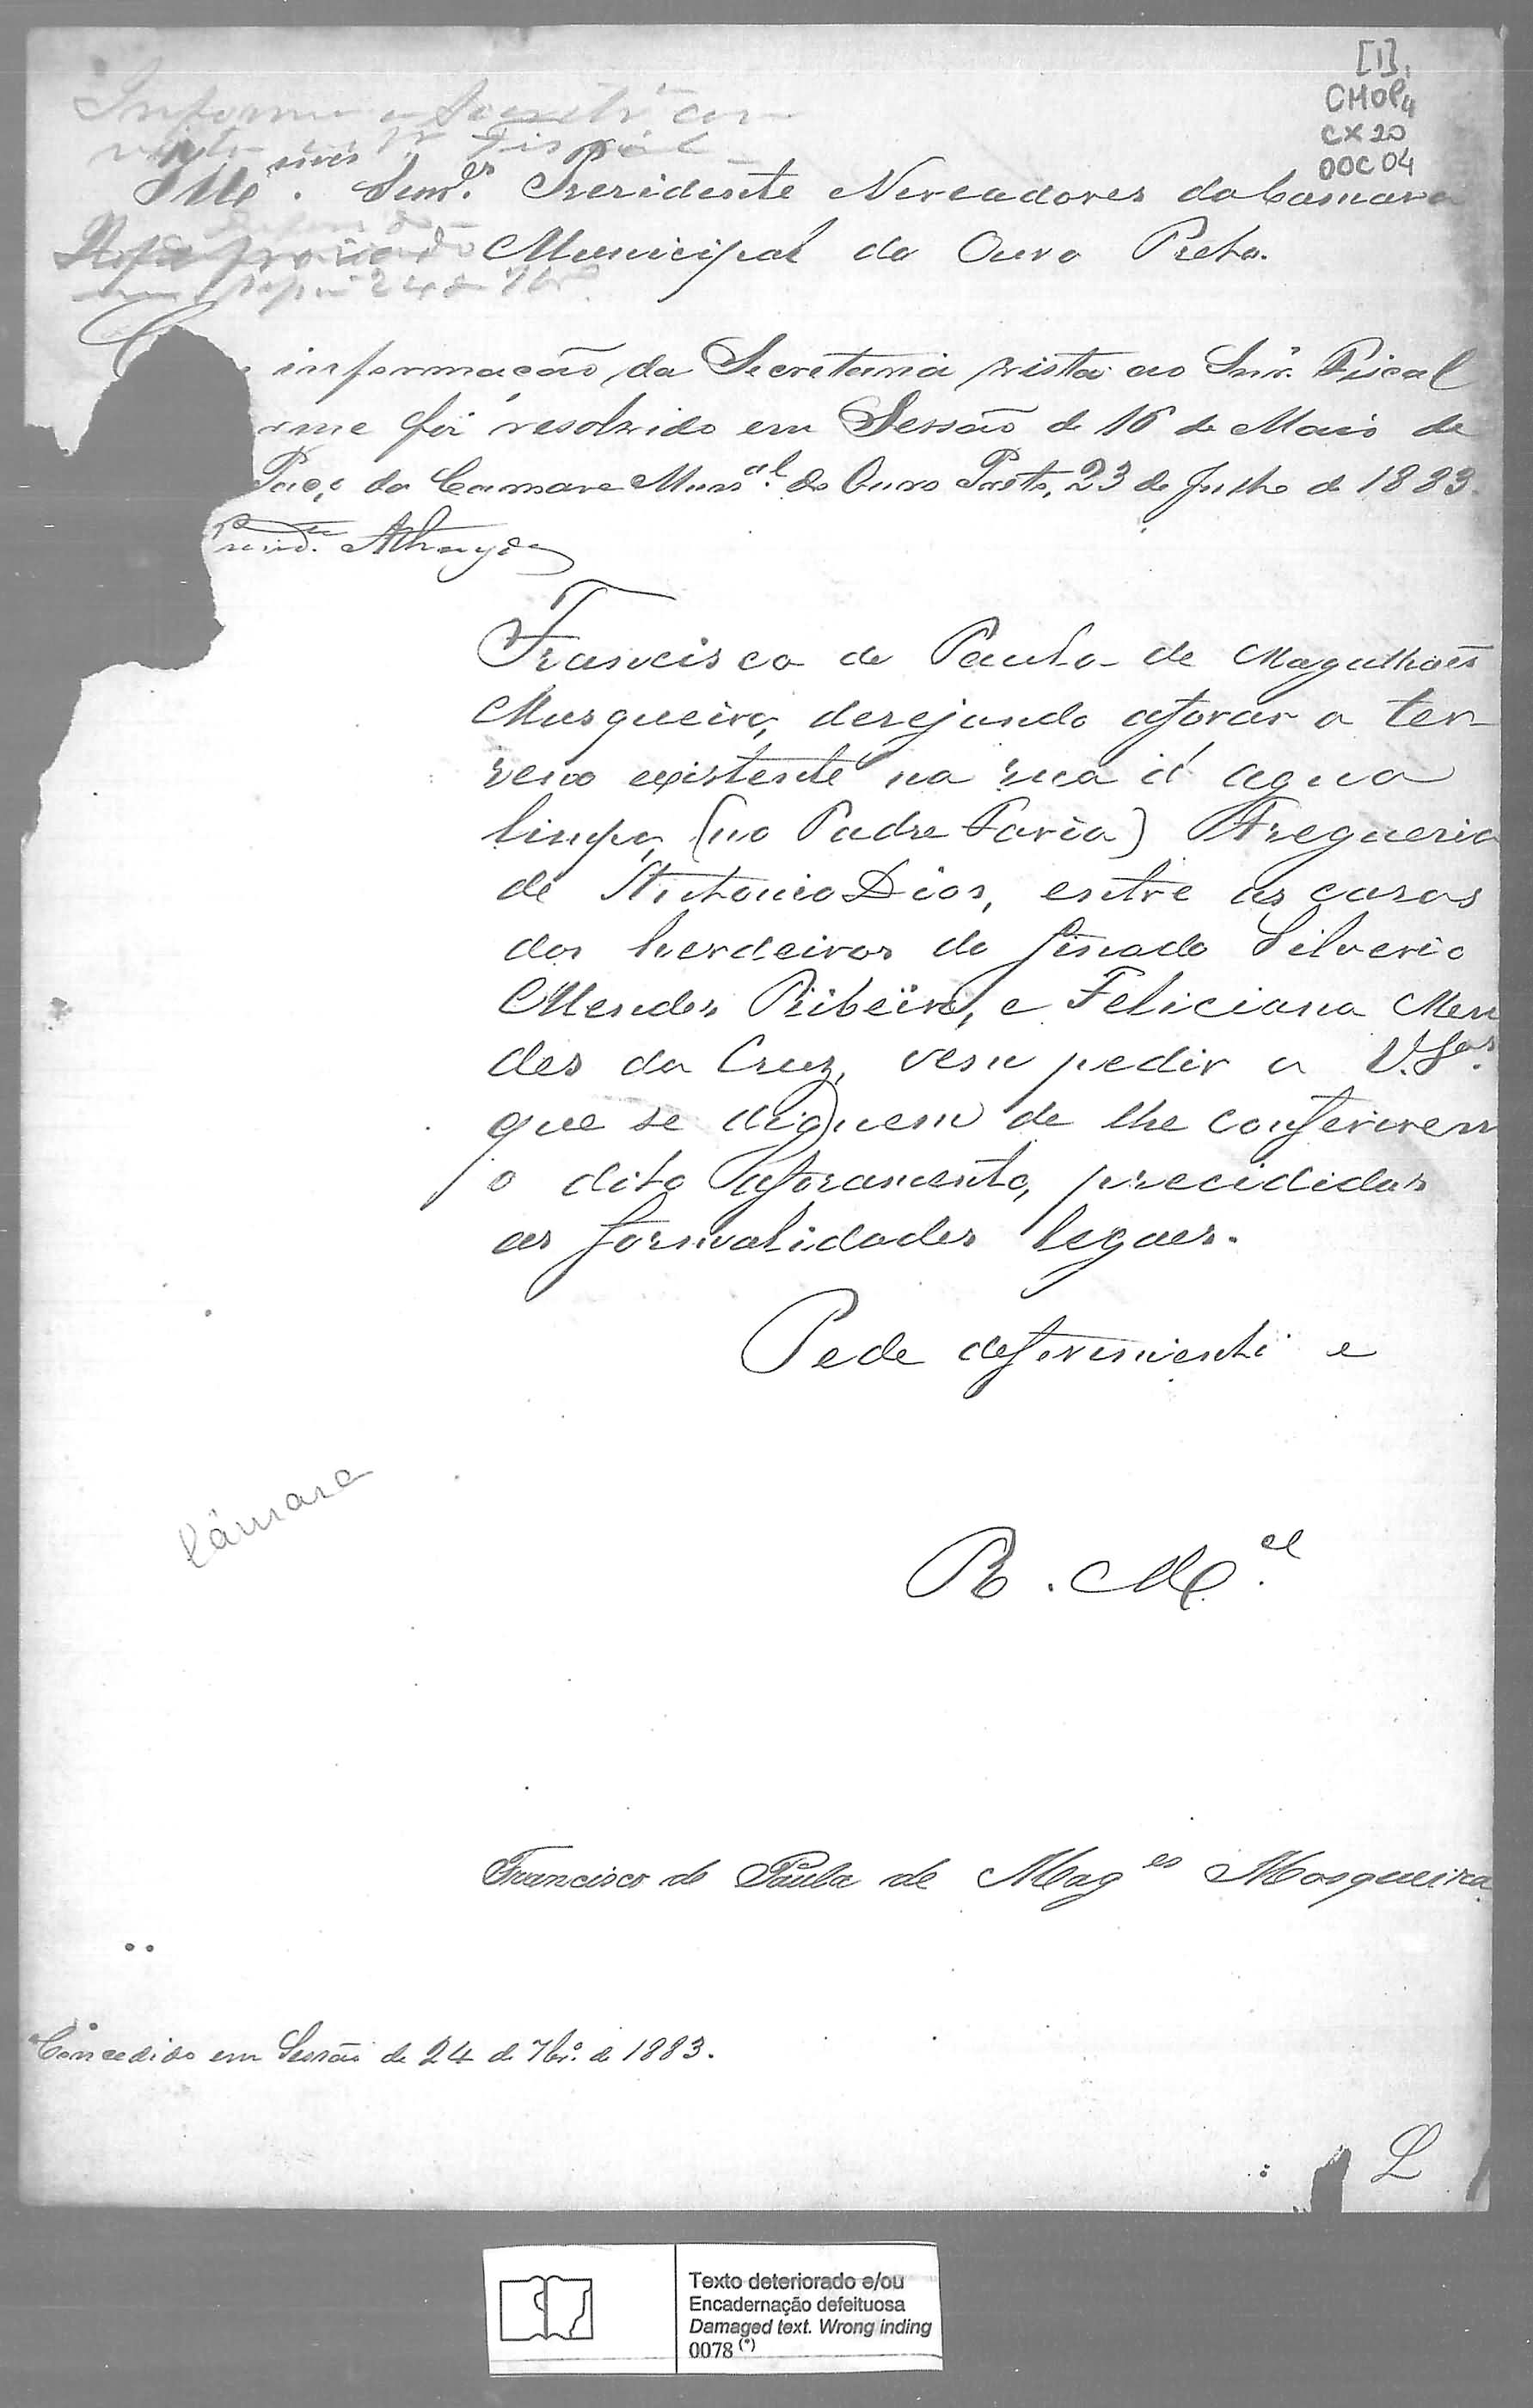 [1].
CMOP4
CX20
DOC 04
Informe a Secretr.ª com
vista ao Sr. Fiscal
Ill.mos Snr.es Prezidente Vereadores da Camara
Municipal do Ouro Preto.
24 de 7br.o
informação da Secretaria vista ao Snr. Fiscal
rme foi resolvido em Sessão de 16 de Maio de
Paço da Camara Munc.al do Ouro Preto, 23 de Julho de 1883.
Athayde
Francisco de Paula de Magalhaẽs
Musqueira, desejando aforar o ter-
reno existente na rua d' agua
limpa, (no Padre Faria) Fregueria
de Antonio Dias, entre as casas
dos herdeiros do finado Silverio
Mendes Ribeiro, e Feliciana Men
des da Cruz, vem pedir a V.S.as
que se dignem de lhe conferirem
o dito aforamento, precididas
as formalidades legaes.
Pede deferimento e
Câmara
R. M.ce
Francisco de Paula de Mag.es Mosqueira
Concedido em Sessão de 24 de 7br.o de 1883.
L
Texto deteriorado e/ou
Encadernação defeituosa
Damaged text. Wrong inding
0078 (*)